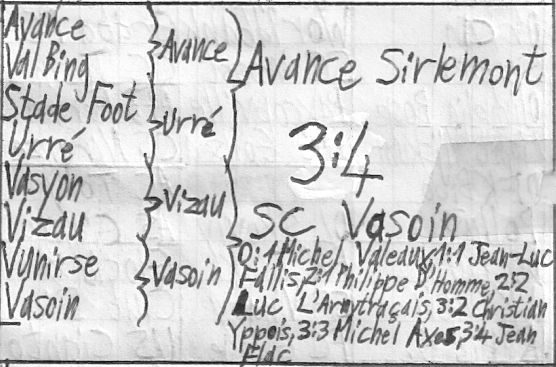 Avance
Val Bing
Stade Foot
Urré
Vasyon
Vizau
Vunirse
Vasoin
Avance
Urré
Vizau
Vasoin
Avance Sirlemont
3:4
SC Vasoin
0:1 Michel Valeaux, 1:1 Jean-Luc
Fallis, 2:1 Philippe D'Homme, 2:2
Luc L'Arnytraçais, 3:2 Christian
Yppois, 3:3 Michel Axos, 3:4 Jean
Flac